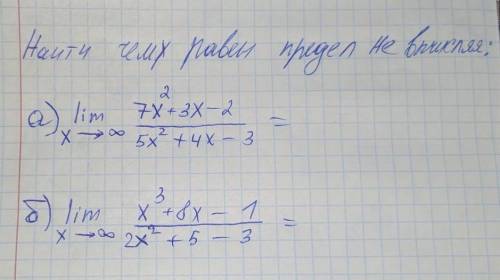 Найти чему равен предел не вычисляя:
а) lim x→∞ (7x² + 3x − 2) / (5x² + 4x − 3) =
б) lim x→∞ (x³ + 8x − 1) / (2x² + 5 − 3) =